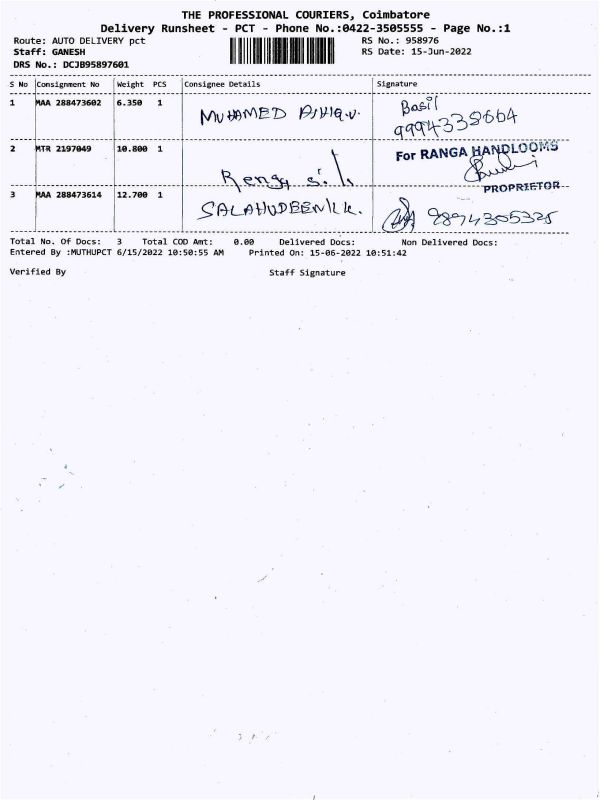 THE PROFESSIONAL COURIERS, Coimbatore
Delivery Runsheet - PCT - Phone No.:0422-3505555 - Page No.:1
Route: AUTO DELIVERY pct RS No.: 958976
Staff: GANESH RS Date: 15-Jun-2022
DRS No.: DCJB95897601
S No Consignment No Weight PCS Consignee Details Signature
1 MAA 288473602 6.350 1 MUHAMED Basil
2 MTR 2197049 10.800 1 For RANGA HANDLOOMS
PROPRIETOR
3 MAA 288473614 12.700 1 SALAHUDEEN 9894305325
Total No. Of Docs: 3 Total COD Amt: 0.00 Delivered Docs: Non Delivered Docs:
Entered By :MUTHUPCT 6/15/2022 10:50:55 AM Printed On: 15-06-2022 10:51:42
Verified By Staff Signature